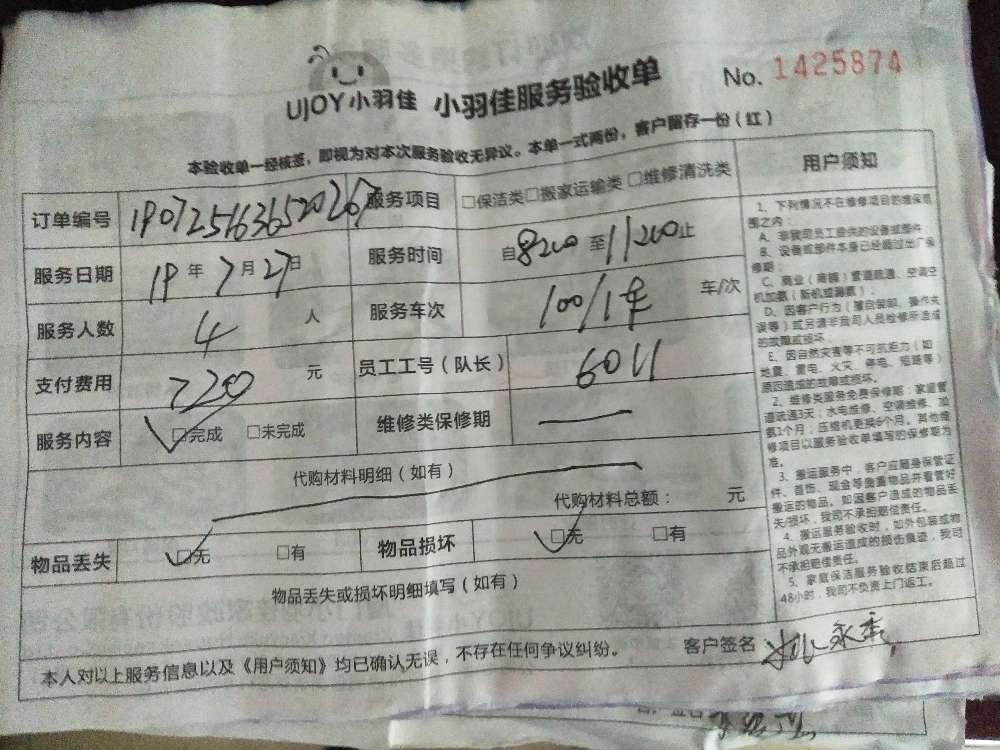 UJOY小羽佳 小羽佳服务验收单 No. 1425874
本验收单一经核签，即视为对本次服务验收无异议。本单一式两份，客户留存一份（红）
订单编号 190725163652026 服务项目 □保洁类□搬家运输类□维修清洗类
服务日期 19年7月27日 服务时间 自8200至11200止
服务人数 4 人 服务车次 100/1车 车/次
支付费用 7200 元 员工工号（队长） 6011
服务内容 □完成 □未完成 维修类保修期 —
代购材料明细（如有）
代购材料总额： 元
物品丢失 □无 □有 物品损坏 □无 □有
物品丢失或损坏明细填写（如有）
本人对以上服务信息以及《用户须知》均已确认无误，不存在任何争议纠纷。 客户签名
用户须知
1、下列情况不在维修项目的维保范
围之内：
A、非我司员工提供的设备或部件
B、设备或部件本身已经超过出厂保
修期；
C、商业（商铺）管道疏通、空调空
机加氨（新机或漏氨）；
D、因客户行为（擅自装卸、操作失
误等）或另请非我司人员检修所造成
的故障或损坏；
E、因自然灾害等不可抗拒力（如
地震、雷电、火灾、停电、短路等）
原因造成的故障或损坏。
2、维修类服务免费保修期：家庭管
道疏通3天；水电维修、空调维修、加
氨1个月；压缩机更换6个月。其他维
修项目以服务验收单填写的保修期为
准。
3、搬运服务中，客户应随身保管证
件、首饰、现金等贵重物品并看管好
搬运的物品。如因客户造成的物品丢
失/损坏，我司不承担赔偿责任。
4、搬运服务验收时，如外包装或物
品外观无搬运造成的损伤痕迹，我司
不承担赔偿责任。
5、家庭保洁服务验收结束后超过
48小时，我司不负责上门返工。